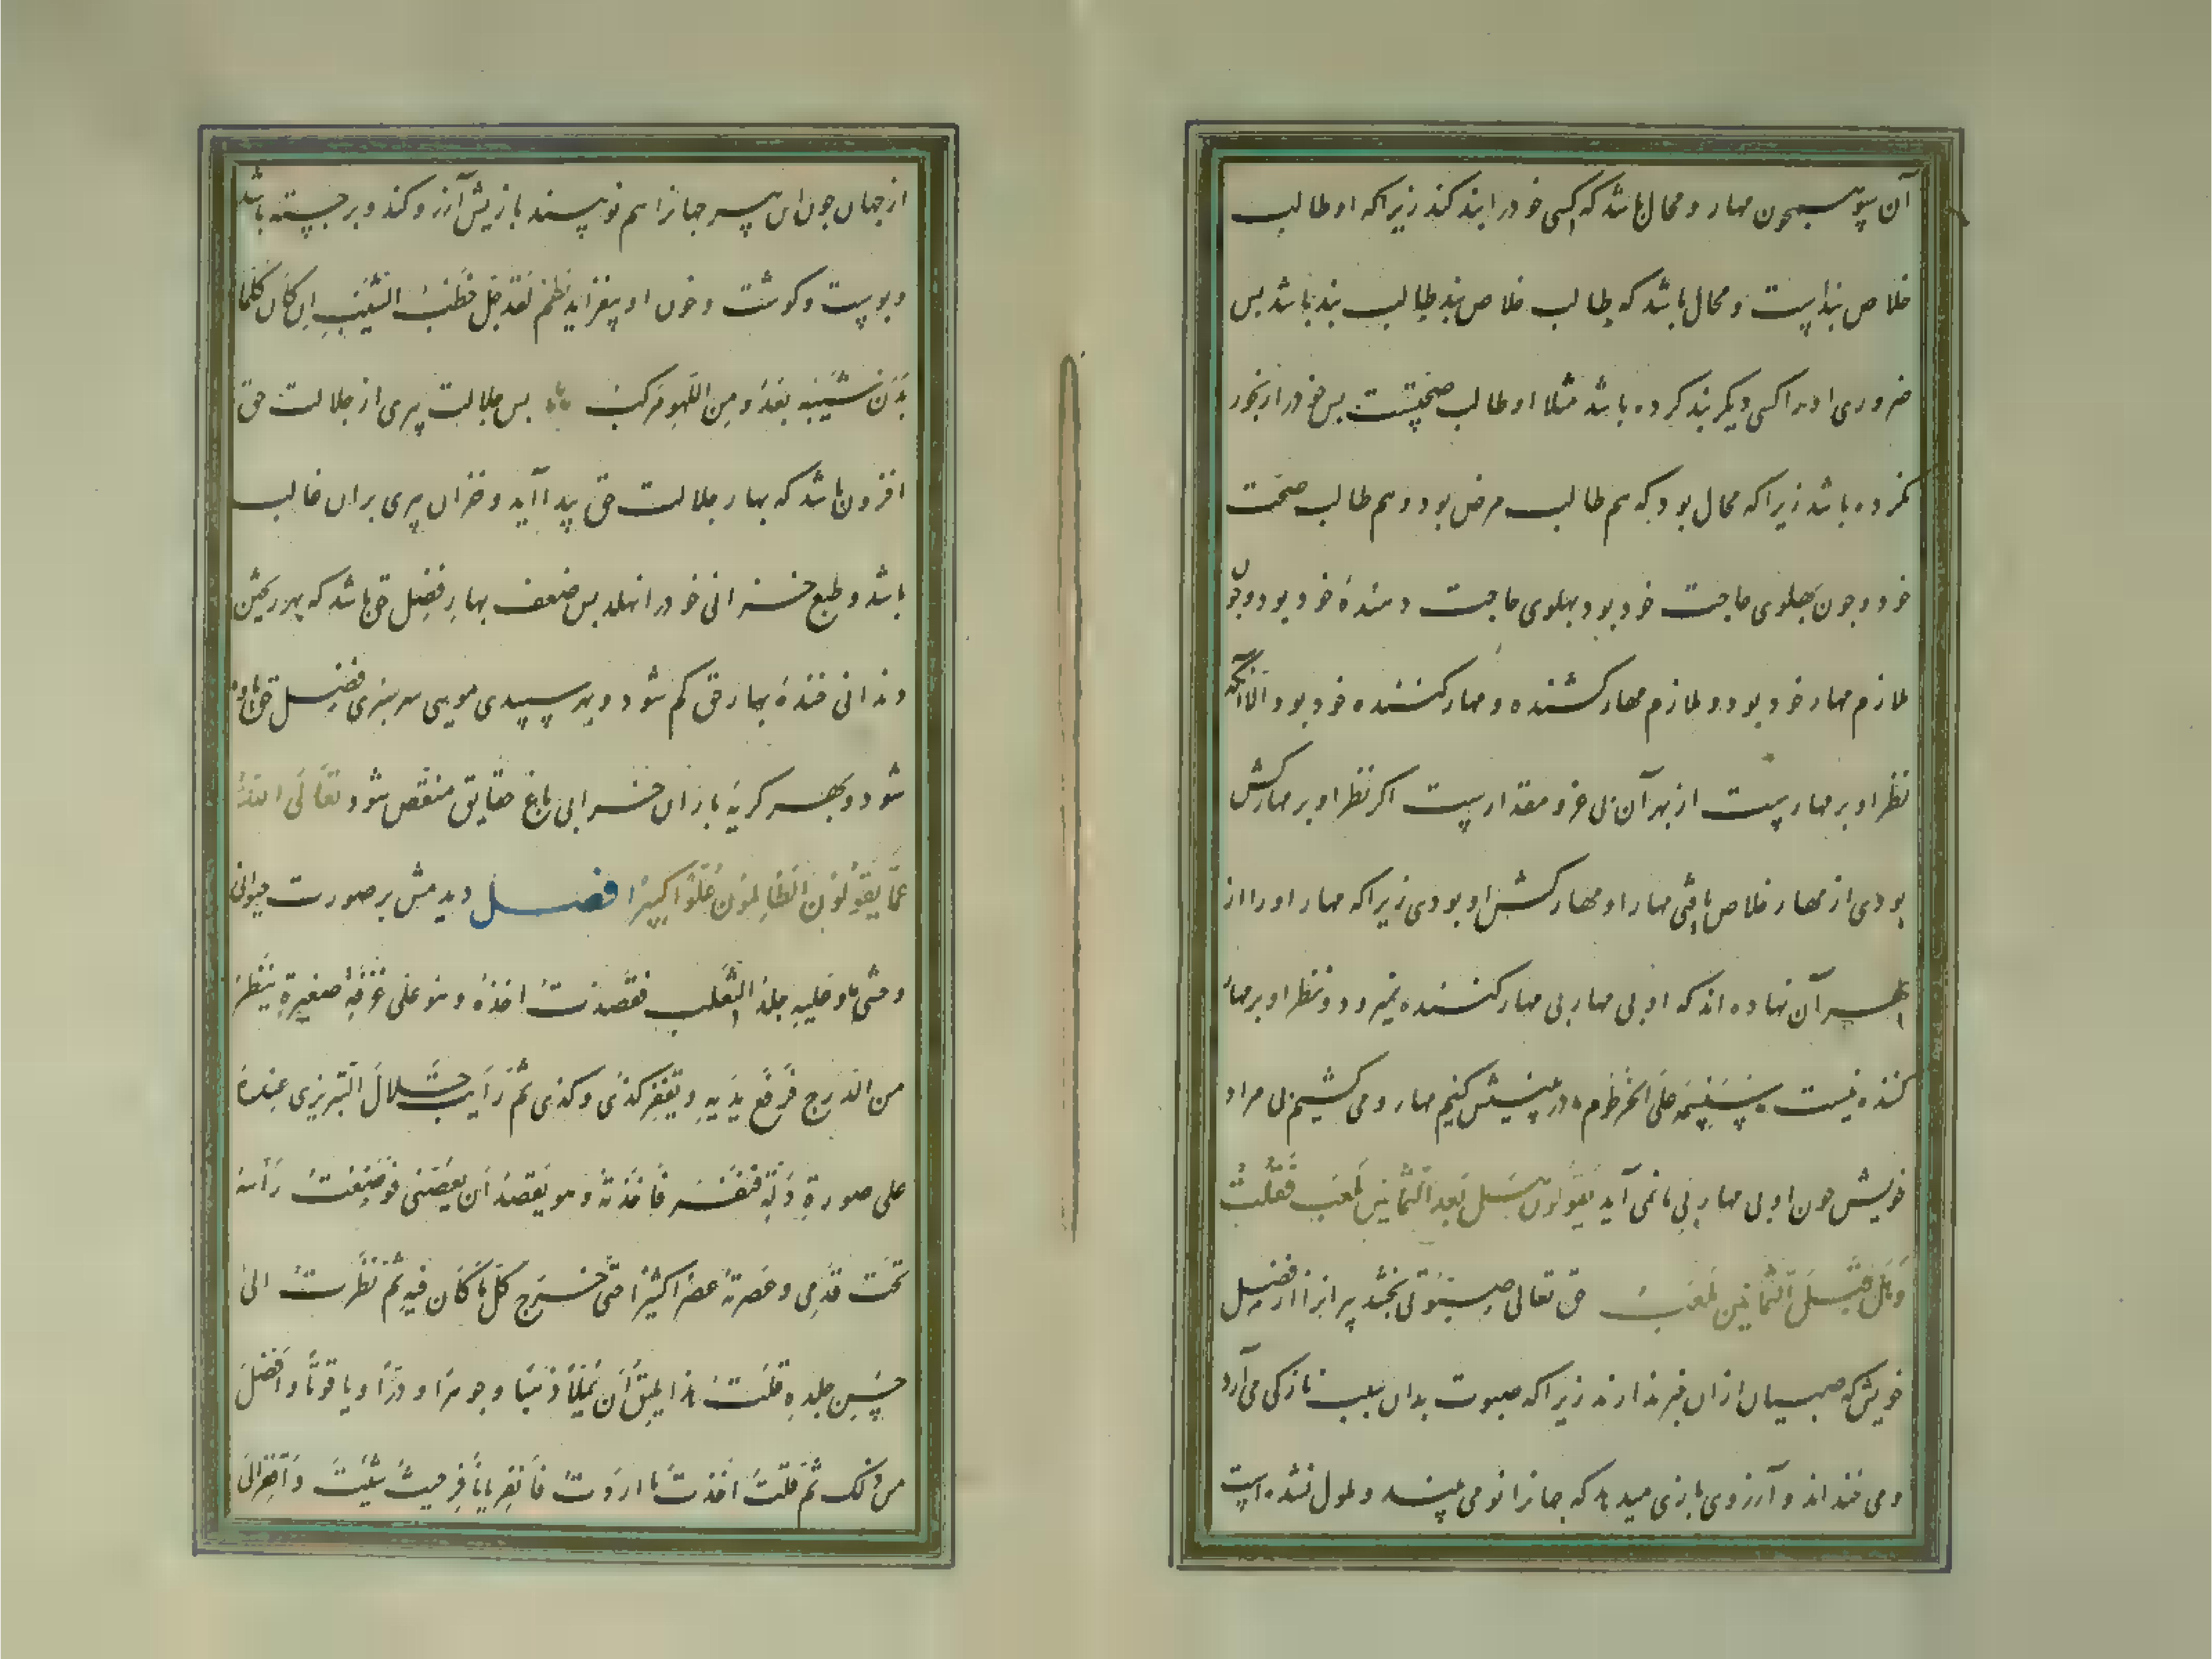 آن سو همچون مهار و محال باشد که کسی خود را بند کند زیرا که او طالب
خلاص بند است و محال باشد که طالب خلاص بند طالب بند باشد بس
ضروری او را کسی دیکر بند کرده باشد مثلا او طالب صحتست بس خود را رنجور
نکرده باشد زیرا که محال بود که هم طالب مرض بود و هم طالب صحت
خود و چون بهلوی حاجت خود بود بهلوی حاجت دهندهٔ خود بود و چون
ملازم مهار خود بود و ملازم مهار کشنده و مهار کننده خود بود الا آنکه
نظر او بر مهارست از بهر آن بی عز و مقدارست اکر نظر او بر مهارکش
بودی از مهار خلاص یافتی مهار او مهارکش او بودی زیرا که مهار او را از
بهر آن نهاده اند که او بی مهار بی مهار کننده نمیرود و نظر او بر مهار
کننده نیست سَنَسِمُهُ عَلَی الْخُرْطُومِ در بینیش کنیم مهار و می کشیم بی مراد
خویش چون او بی مهار بی ما نمی آید یَقُولُونَ هَلْ بَعْدَ الثَّمَانِینَ مَلْعَبُ فَقُلْتُ
وَهَلْ قَبْلَ الثَّمَانِینَ مَلْعَبُ حق تعالی صبوتی بخشد پیرانرا از فضل
خویش که صبیان از ان خبر ندارند زیرا که صبوت بدان سبب تازکی می آرد
و می خنداند و آرزوی بازی میدهد که جهانرا نو می بیند و ملول نشده است
از جهان چون این پیر جهانرا هم نو بیند بازیش آرزو کند و برجسته باشد
و پوست و کوشت و خون او بیفزاید نظم لَقَدْ جَلَّ خَطْبُ الشَّیْبِ اِنْ کَانَ کُلَّمَا
بَدَتْ شَیْبَةٌ یَعْدُو مِنَ اللَّهْوِ مَرْکَبُ بس جلالت پیری از جلالت حق
افزون باشد که بهار جلالت حق پیدا آید و خزان پیری بران غالب
باشد و طبع خزانی خود را نهلد بس ضعف بهار فضل حق باشد که بهر ریختن
دندانی خندهٔ بهار حق کم شود و بهر سپیدی مویی سرسبزی فضل حق یاوه
شود و بهر کریهٔ باران خزانی باغ حقایق منغص شود تَعَالَی اللهُ
عَمَّا یَقُولُونَ الظَّالِمُونَ عُلُوًّا کَبِیرًا فصل دیدمش بر صورت حیوانی
وحشی و علیه جلد الثعلب فقصدت اخذه و هو علی غرفة صغیرة ینظر
من الدرج فرفع یدیه و یقفز کذی و کذی ثم رایت جلال التبریزی عنده
علی صورة دلة فنفر فاخذته و هو یقصد ان یعضنی فوضعت راسه
تحت قدمی و عصرته عصرا کثیرا حتی خرج کل ما کان فیه ثم نظرت الی
حسن جلده قلت هذا یلیق ان یملأ ذهبا و جوهرا و درا و یاقوتا و افضل
من ذلک ثم قلت اخذت ما اردت فانفر یا نافر حیث شئت و اقفز الی